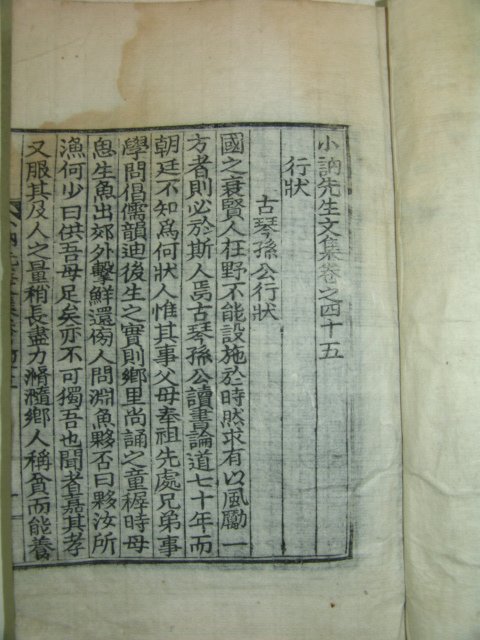 小訥先生文集卷之四十五
行狀
古琴孫公行狀
國之衰賢人在野不能設施於時然求有以風勵一
方者則必於斯人焉古琴孫公讀書論道七十年而
朝廷不知為何狀人惟其事父母奉祖先處兄弟事
學問倡儒韻迪後生之實則鄉里尚誦之童穉時母
思生魚出郊外擊鮮還傍人問淵魚夥否曰夥汝所
漁何少曰供吾母足矣亦不可獨吾也聞者嘉其孝
又服其及人之量稍長盡力滫瀡鄉人稱貧而能養